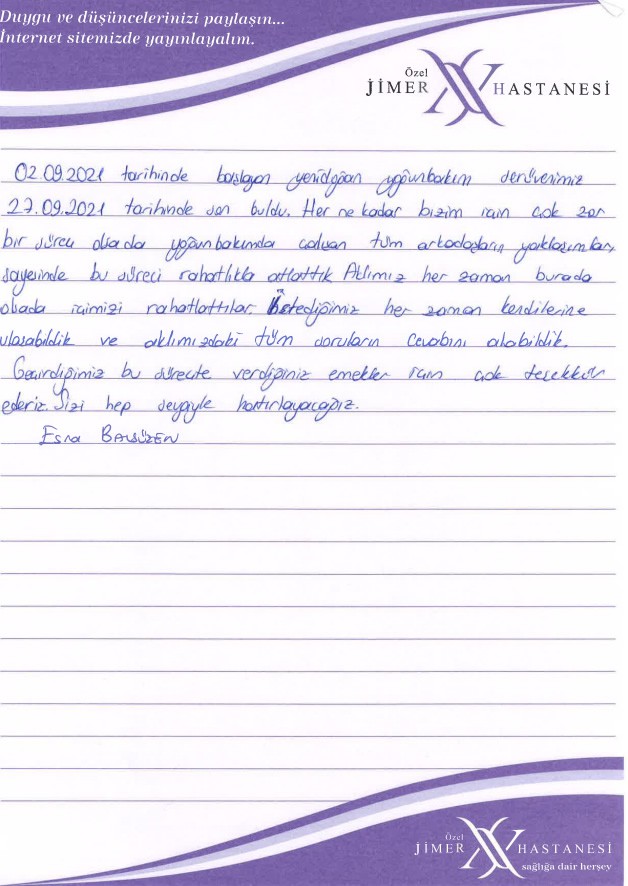 Duygu ve düşüncelerinizi paylaşın...
İnternet sitemizde yayınlayalım.
Özel
JİMER HASTANESİ
02.09.2021 tarihinde başlayan yenidğoan yoğunbakım serüvenimiz
27.09.2021 tarihinde son buldu. Her ne kadar bizim için çok zor
bir süreci olsada yoğunbakımda çalışan tüm arkadaşların yaklaşımları
sayesinde bu süreci rahatlıkla atlattık Aklımız her zaman burada
olsada içimizi rahatlattılar. İstediğimiz her zaman kendilerine
ulaşabildik ve aklımızdaki tüm soruların cevabını alabildik.
Geçirdiğimiz bu süreçte verdiğiniz emekler için çok teşekkür
ederiz. Sizi hep sevgiyle hatırlayacağız.
Esra
Özel
JİMER HASTANESİ
sağlığa dair herşey